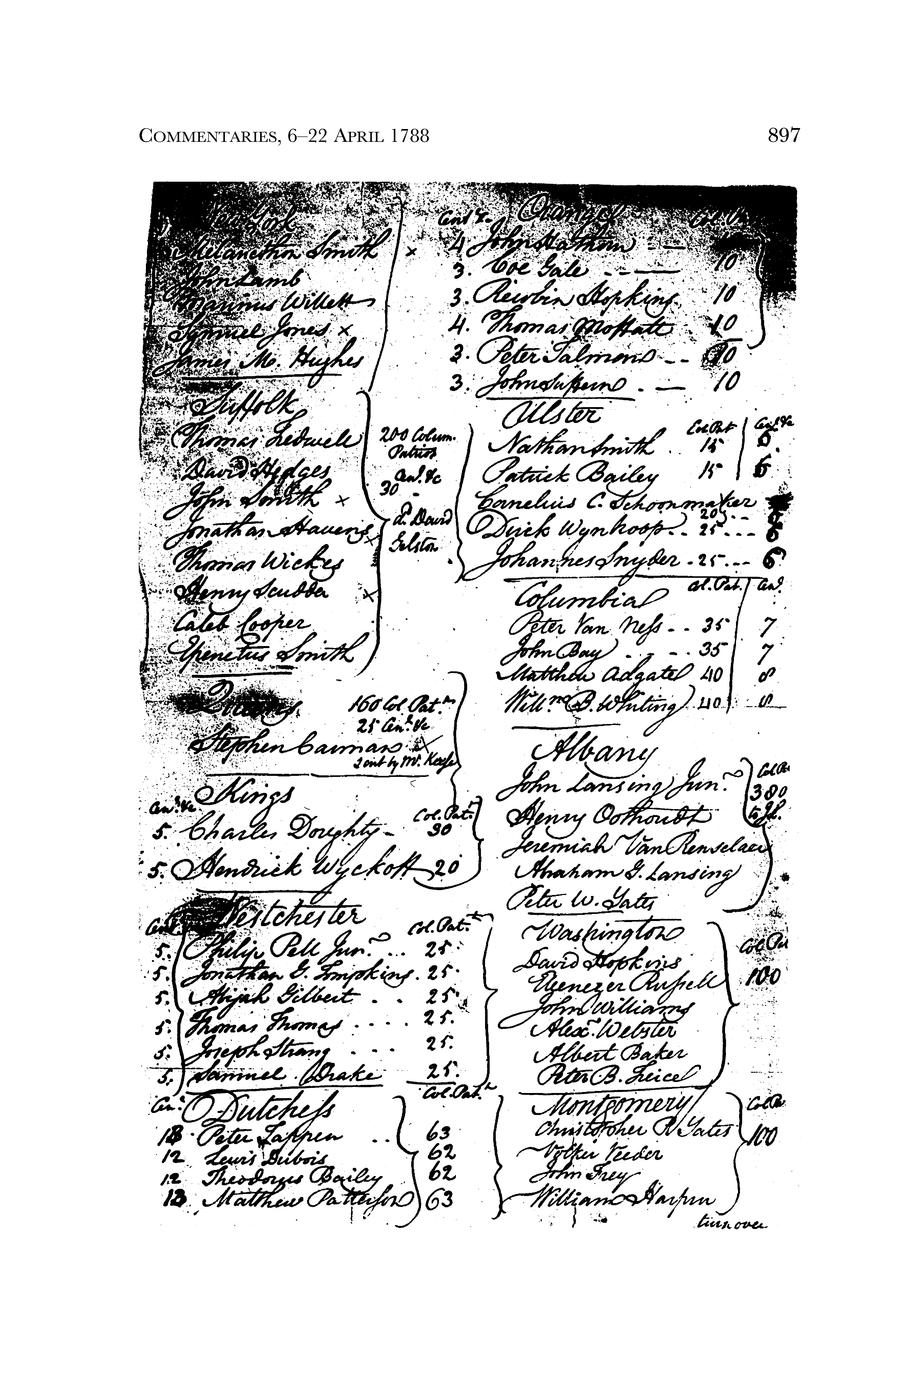 COMMENTARIES, 6–22 APRIL 1788 897
New York
Melancthon Smith x
John Lamb
Marinus Willett
Samuel Jones x
James M. Hughes
Suffolk
Thomas Tredwell
David Hedges
John Smith x
Jonathan Havens x
Thomas Wickes
Henry Scudder x
Caleb Cooper
Epenetus Smith
200 Colum.
Patriot
30 Cen.l &c
D. David
Gelston
Queens
160 Col Pat.t
25 Cen.l &c
Stephen Carman x
Sent by Mr.
Kings
Cen.l &c Col. Pat.t
5. Charles Doughty - 30
5. Hendrick Wyckoff 20
Westchester
Cen.l Col. Pat.t
5. Philip Pell Jun.r .. 25.
5. Jonathan G. Tompkins. 25.
5. Abijah Gilbert . . 25.
5. Thomas Thomas .... 25.
5. Joseph Strang ... 25.
5. Samuel Drake 25.
Col. Pat.t
Cen.l Dutchess
13 Peter Tappen .. 63
12 Lewis Dubois 62
12 Theodorus Bailey 62
13 Matthew Patterson 63
Cen.l &c. Orange Col. Pat
4 John Hathorn
3. Coe Gale ------ 10
3. Reuben Hopkins. 10
4. Thomas Moffatt 10
3. Peter Talmons -- 10
3. John Suffern . — 10
Ulster
Col. Pat Cen.l &c
Nathan Smith . 15 5.
Patrick Bailey 15 5
Cornelius C. Schoonmaker
20 ...
Dirck Wynkoop .. 25 ... 6
Johannes Snyder . 25 ... 6
Col. Pat. Cen.l
Columbia
Peter Van Ness - - 35 7
John Bay . - . - . 35 7
Matthew Adgate 40 8
Will.m B. Whiting 40 8
Albany
John Lansing Jun.r Col Pa
Henry Oothoudt 300
Jeremiah Van Renselaer
Abraham G. Lansing
Peter W. Yates
Washington
David Hopkins Col Pat
Ebenezer Russell 100
John Williams
Alex.r Webster
Albert Baker
Peter B. Teirce
Montgomery Col. P
Christopher P. Yates 100
Volker Veeder
John Frey
William Harper
turn over